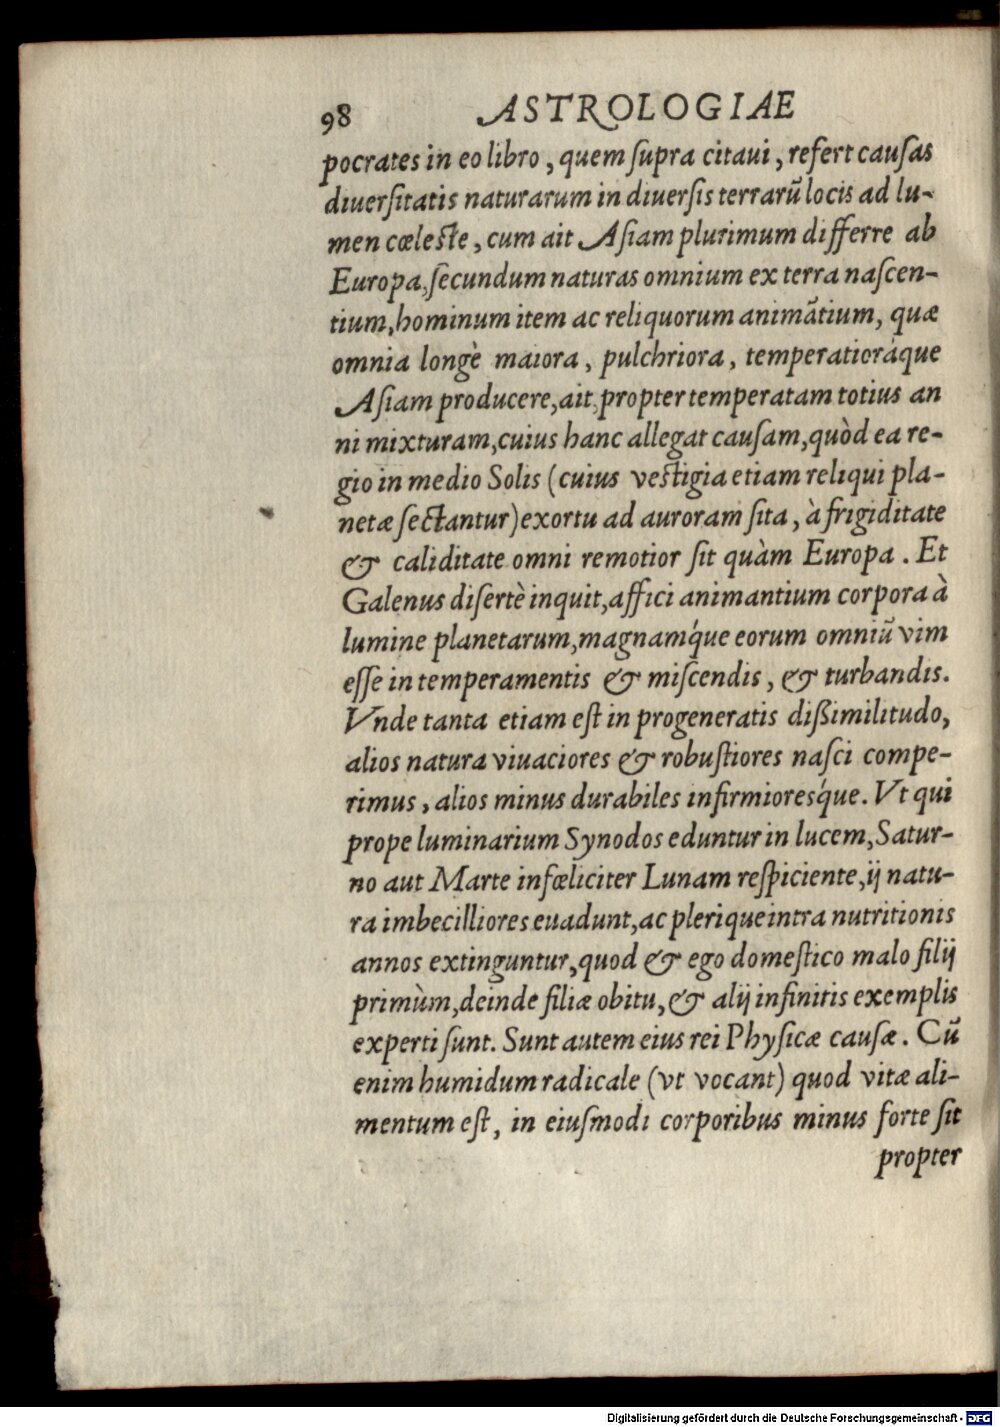 98 ASTROLOGIAE
pocrates in eo libro, quem ſupra citaui, refert cauſas
diuerſitatis naturarum in diuerſis terrarũ locis ad lu-
men cœleſte, cum ait Aſiam plurimum differre ab
Europa, ſecundum naturas omnium ex terra naſcen-
tium, hominum item ac reliquorum animãtium, quæ
omnia longè maiora, pulchriora, temperatioráque
Aſiam producere, ait, propter temperatam totius an
ni mixturam, cuius hanc allegat cauſam, quòd ea re-
gio in medio Solis (cuius veſtigia etiam reliqui pla-
netæ ſectantur) exortu ad auroram ſita, à frigiditate
& caliditate omni remotior ſit quàm Europa. Et
Galenus diſertè inquit, affici animantium corpora à
lumine planetarum, magnamq́ue eorum omniũ vim
eſſe in temperamentis & miſcendis, & turbandis.
Vnde tanta etiam eſt in progeneratis dißimilitudo,
alios natura viuaciores & robuſtiores naſci compe-
rimus, alios minus durabiles infirmioresq́ue. Vt qui
prope luminarium Synodos eduntur in lucem, Satur-
no aut Marte infœliciter Lunam reſpiciente, ij natu-
ra imbecilliores euadunt, ac plerique intra nutritionis
annos extinguntur, quod & ego domeſtico malo filij
primùm, deinde filiæ obitu, & alij infinitis exemplis
experti ſunt. Sunt autem eius rei Phyſicæ cauſæ. Cũ
enim humidum radicale (vt vocant) quod vitæ ali-
mentum eſt, in eiuſmodi corporibus minus forte ſit
propter
Digitalisierung gefördert durch die Deutsche Forschungsgemeinschaft - DFG